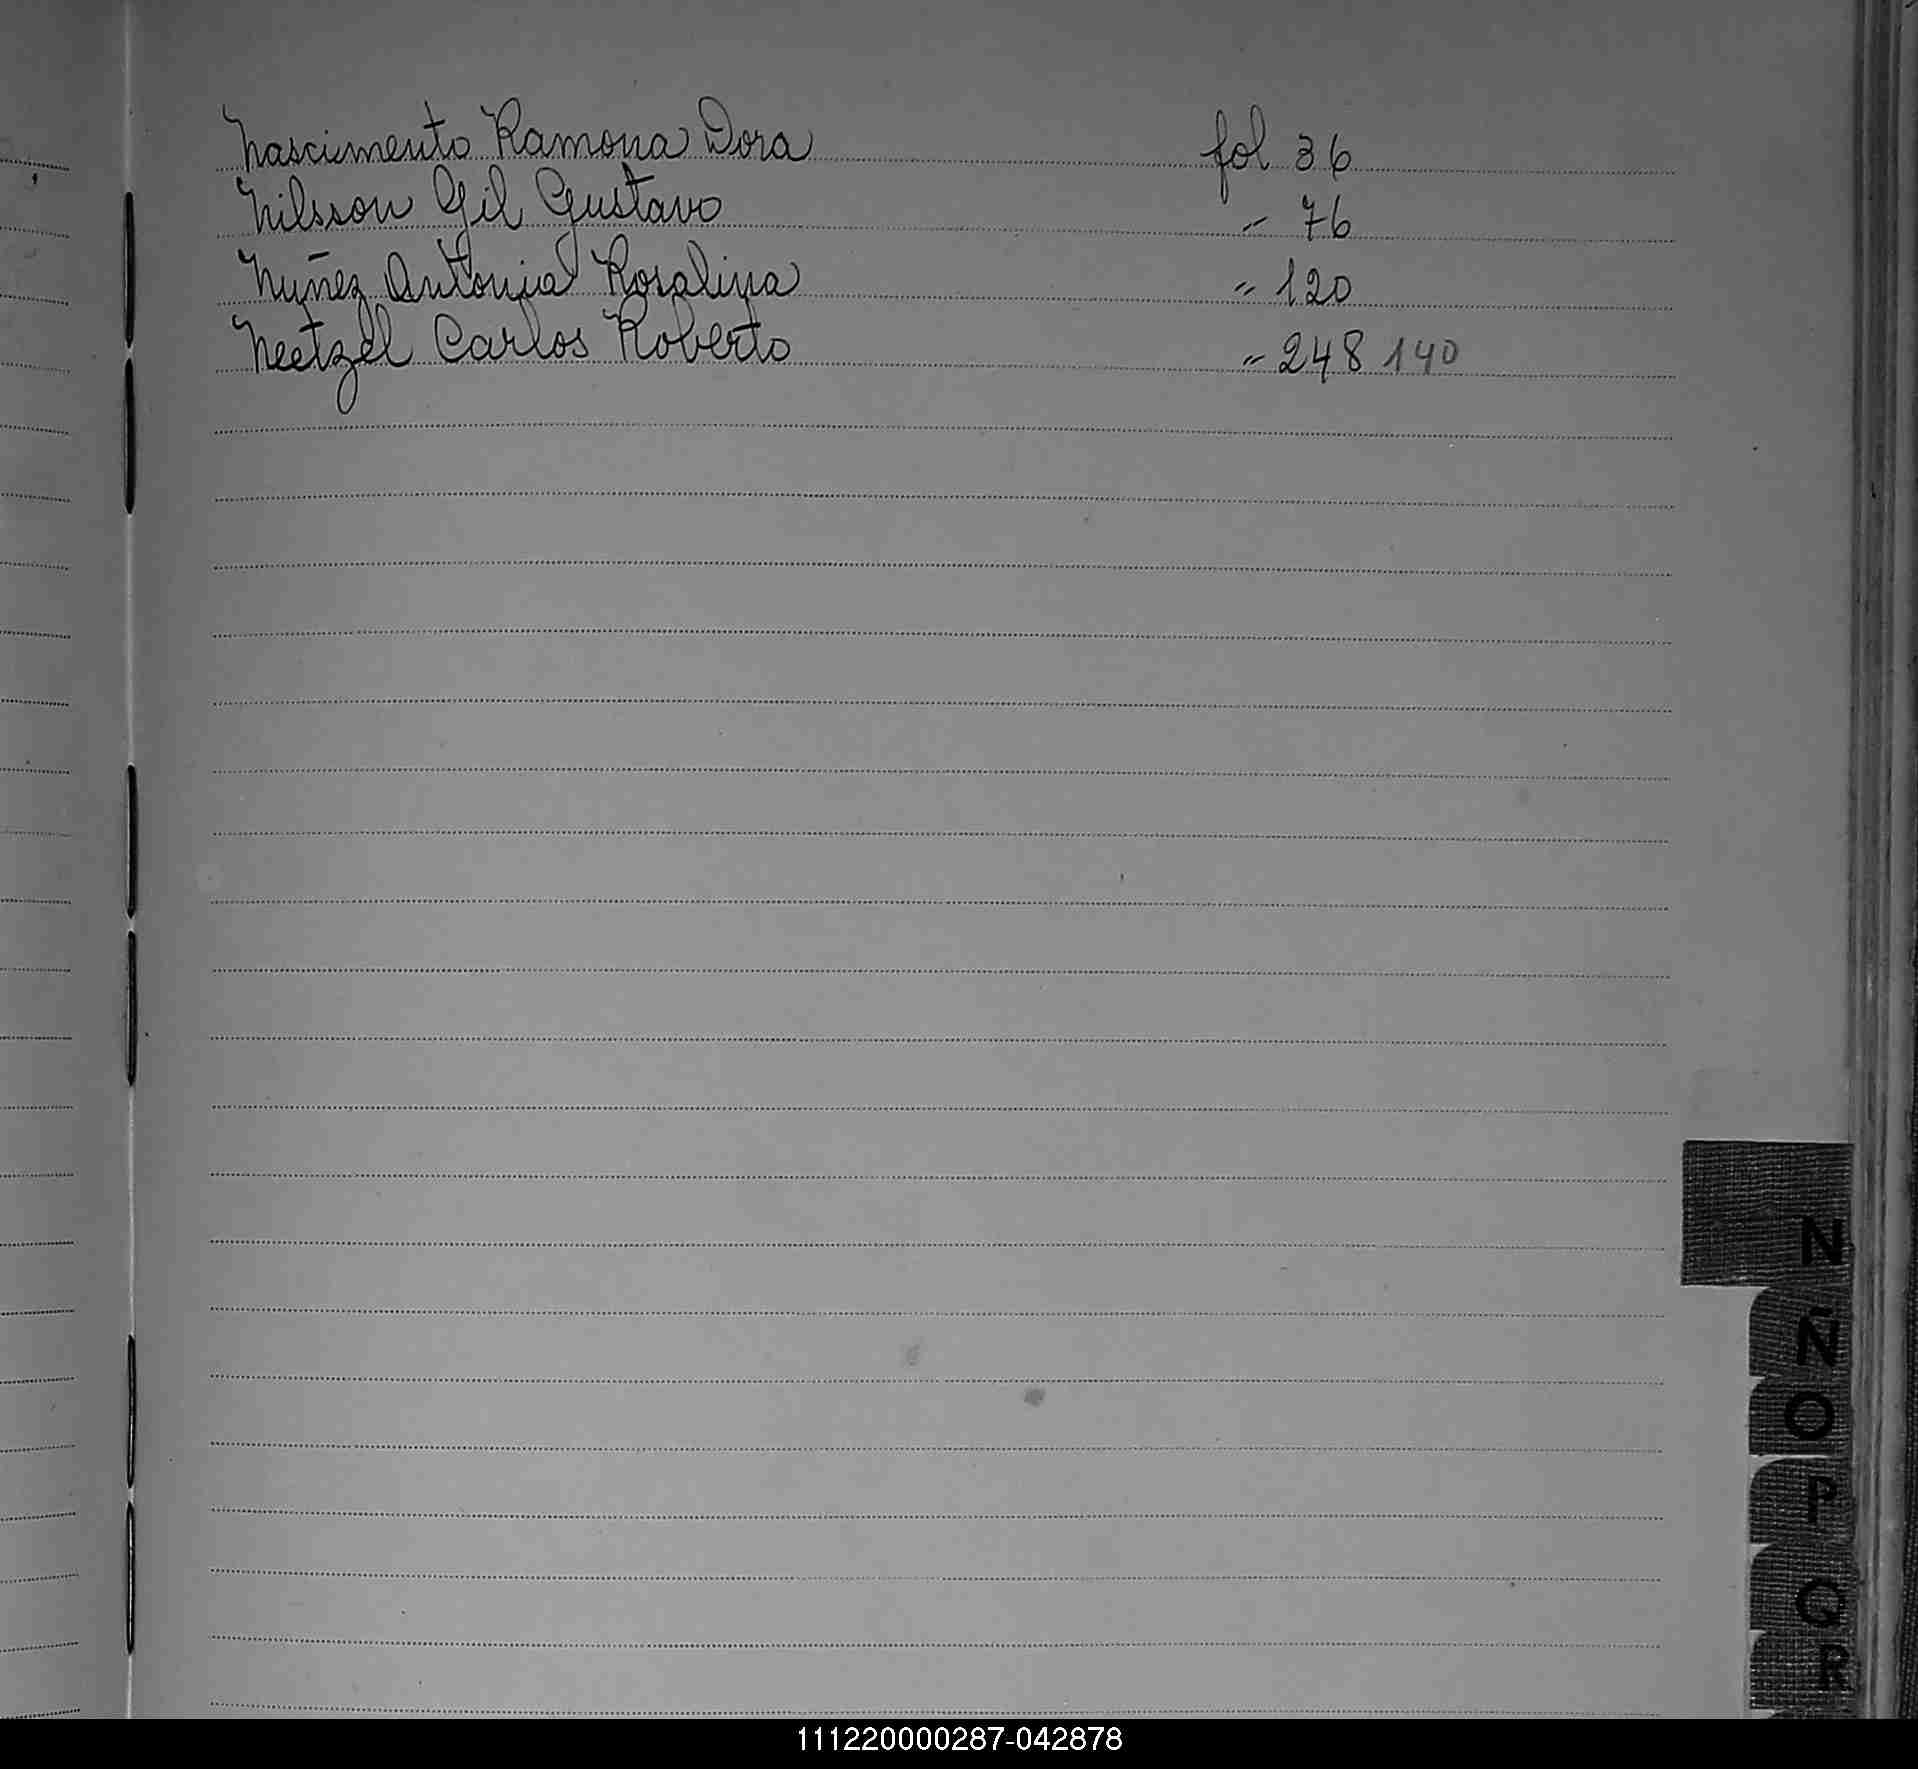 Nascimento Ramona Dora fol 36
Nilsson Gil Gustavo " 76
Nuñez Antonia Rosalina " 120
Neetzel Carlos Roberto " 248 140
N
Ñ
O
P
Q
R
111220000287-042878